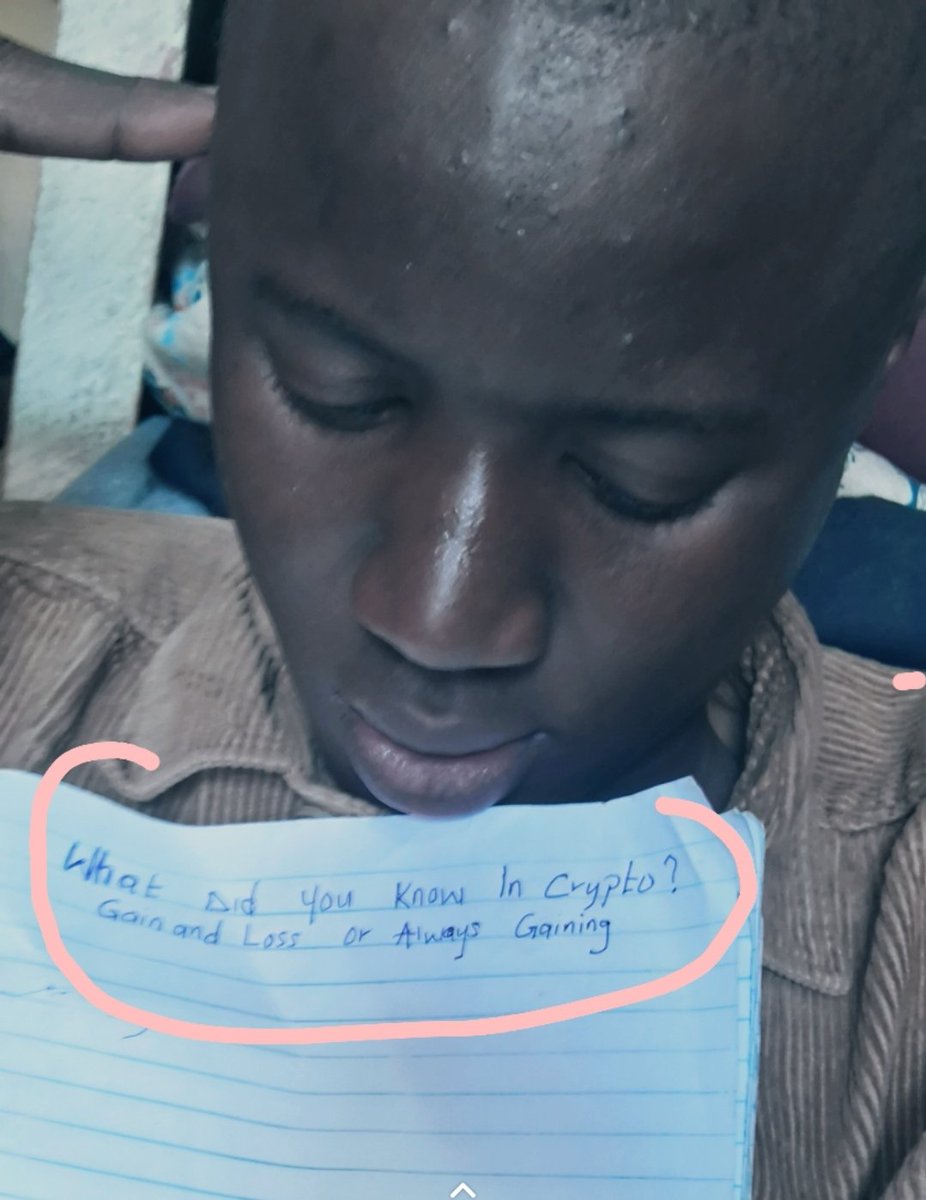 What Did you Know In Crypto?
Gain and Loss or Always Gaining